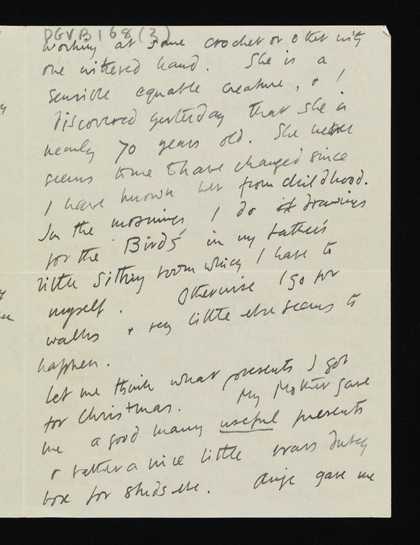 DGVB168(3)
working at some crochet or other with
one withered hand. She is a
sensible equable creature, & I
discovered yesterday that she is
nearly 70 years old. She never
seems to me to have changed since
I have known her from childhood.
In the mornings I do drawings
for the 'Birds' in my father's
little sitting room which I have to
myself. Otherwise I go for
walks & very little else seems to
happen.
Let me think what presents I got
for Christmas. My Mother gave
me a good many useful presents
& rather a nice little brass
box for studs etc. gave me